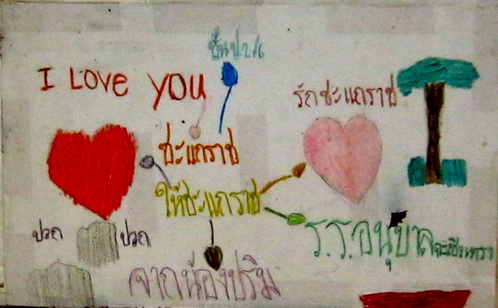 ชั้นป.2/6
I Love you
รักชะแกราช
ชะแกราช
ให้ชะแกราช
ปวก ปวก
ร.ร.อนุบาลฉะเชิงเทรา
จากน้องปริม